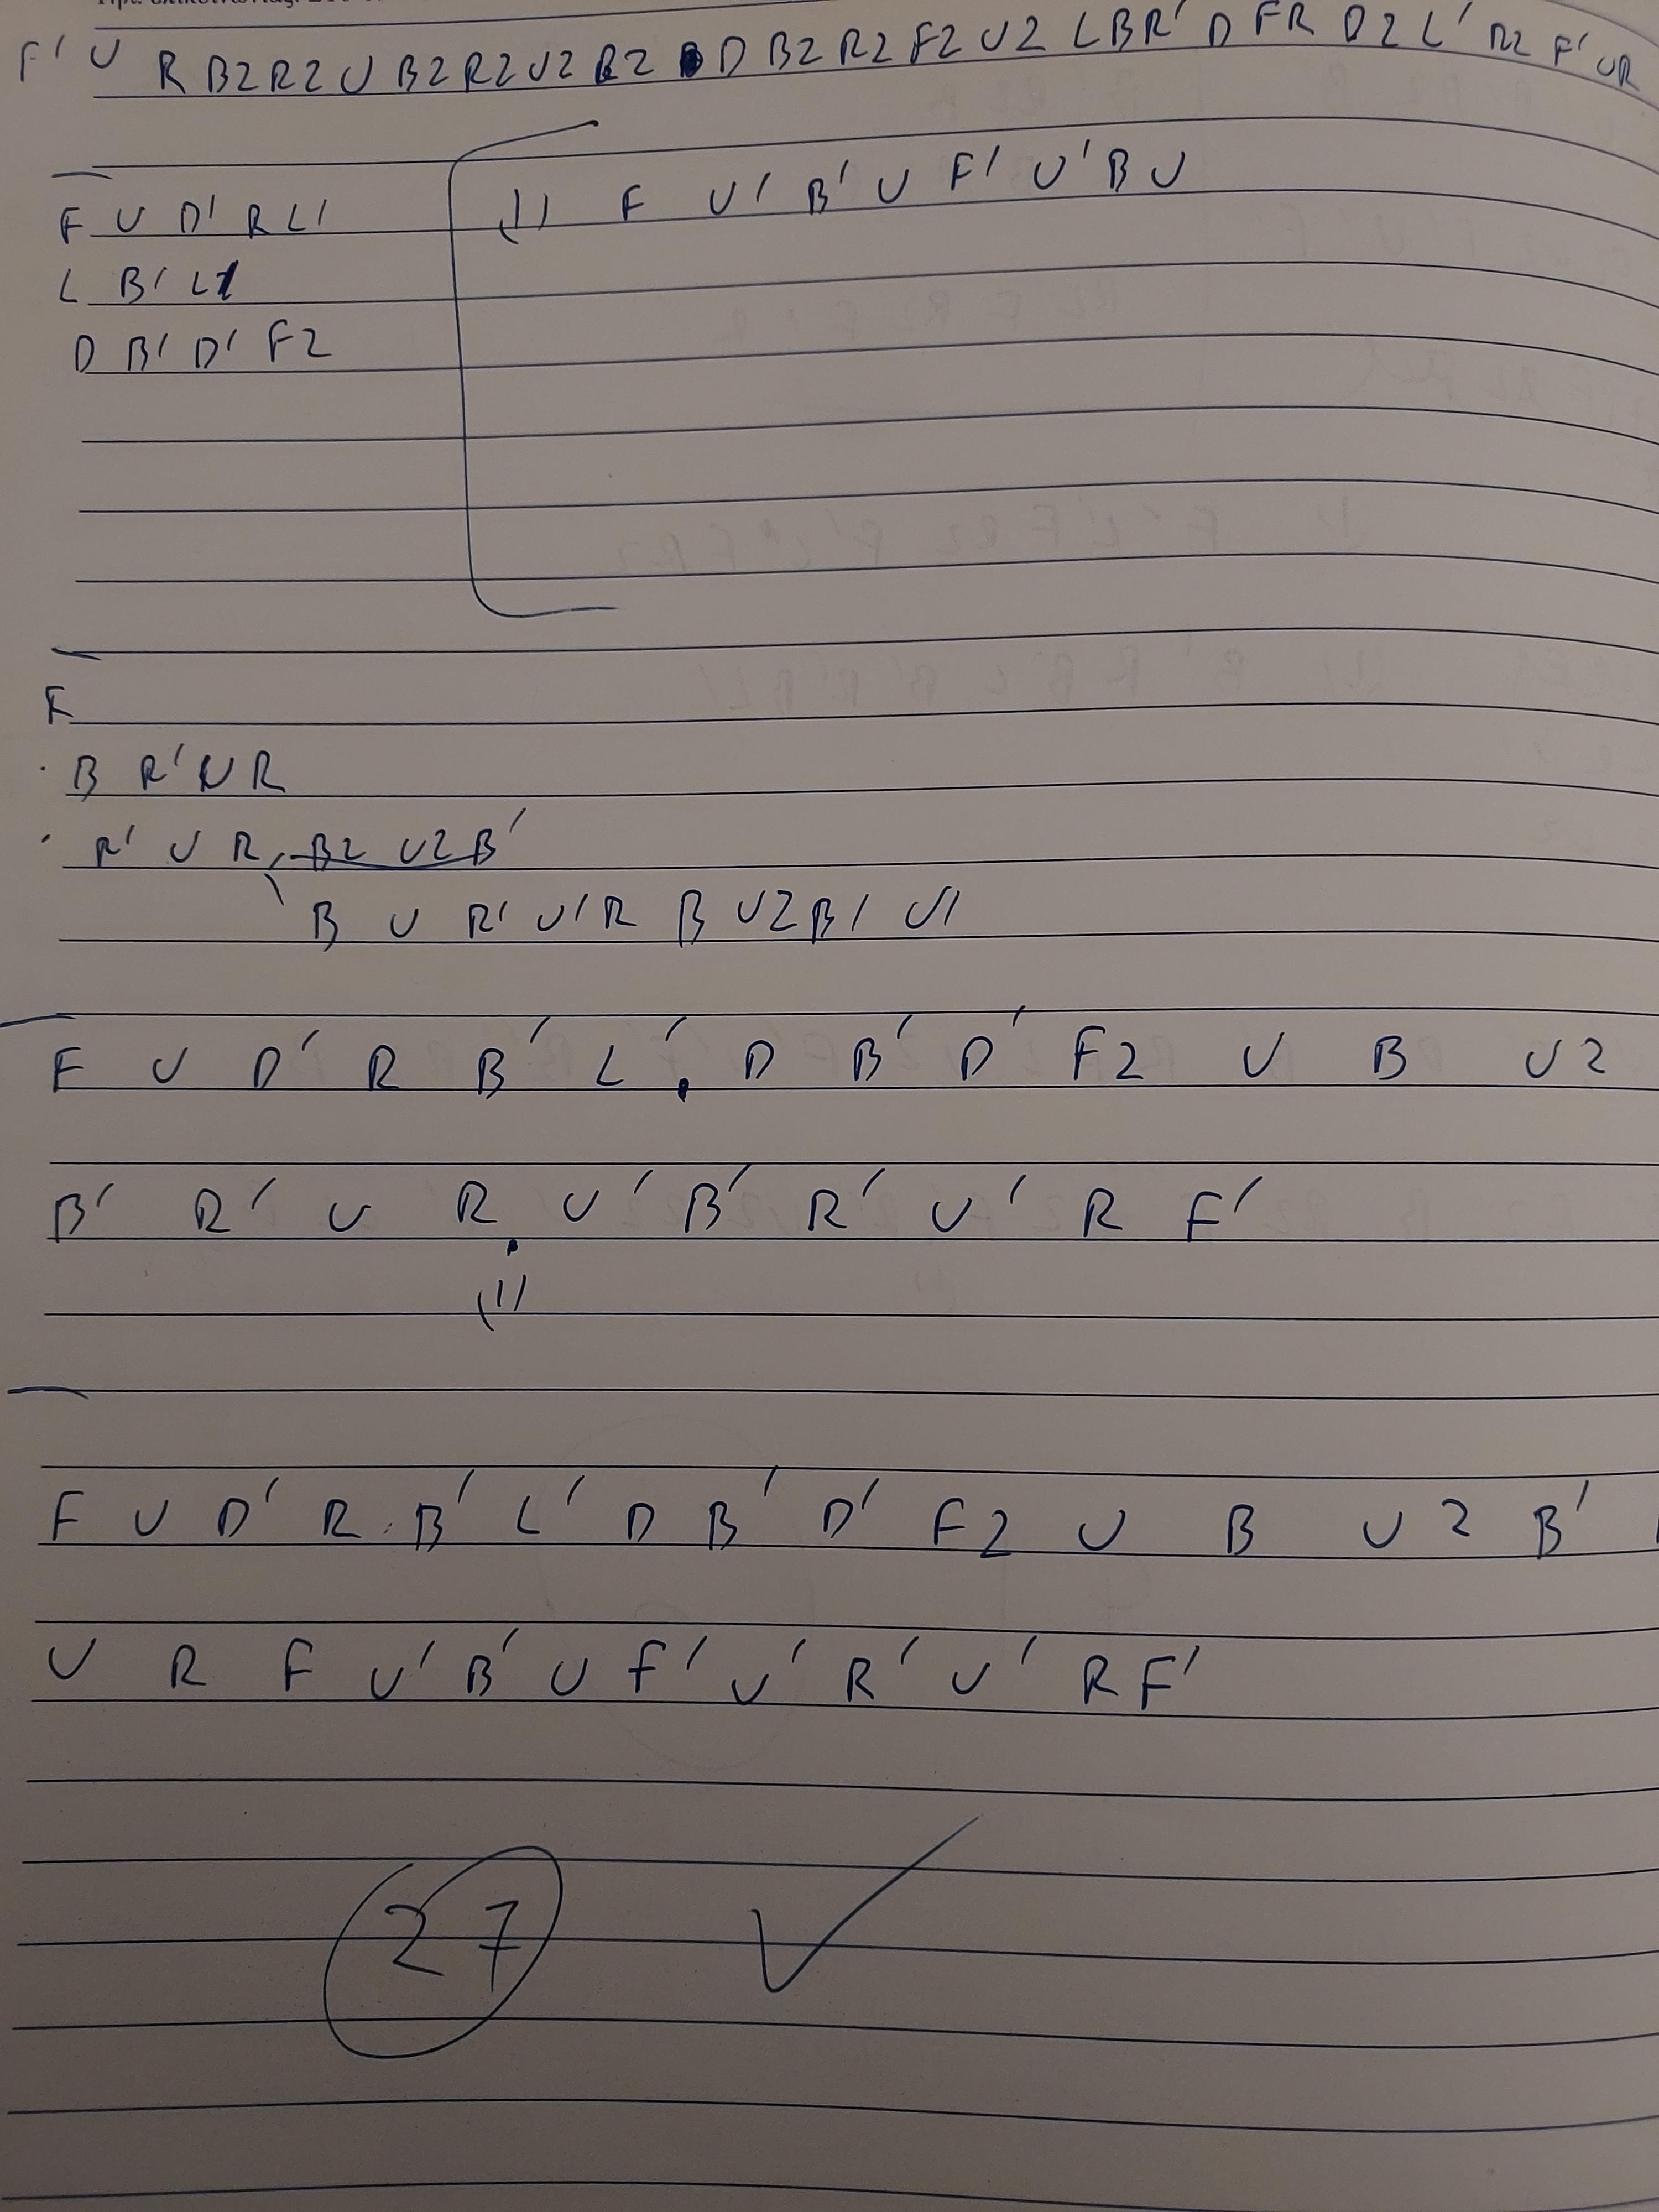 F' U R B2 R2 U B2 R2 U2 R2 D B2 R2 F2 U2 L B R' D F R D2 L' R2 F' U R
F U D' R L' (1) F U' B' U F' U' B U
L B' L1
D B' D' F2
F
B R' U R
R' U R, B2 U2 B'
B U R' U' R B U2 B' U'
F U D' R B' L' D B' D' F2 U B U2
B' R' U R U' B' R' U' R F'
(1)
F U D' R B' L' D B' D' F2 U B U2 B'
U R F U' B' U F' U' R' U' R F'
27